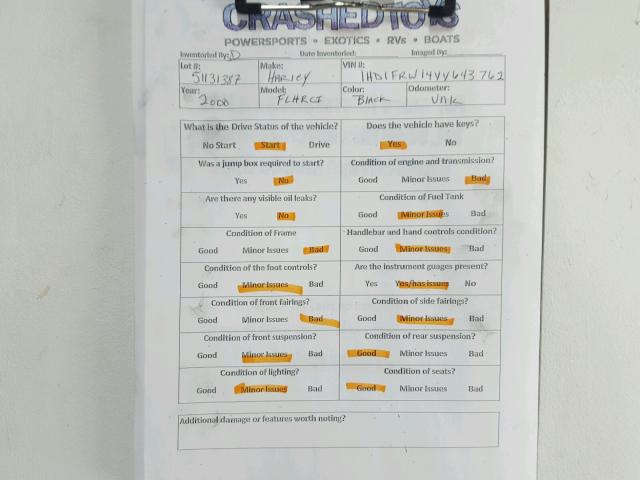 CRASHEDTOYS
POWERSPORTS • EXOTICS • RVs • BOATS
Inventoried By: D Date Inventoried: Imaged By:
Lot #: Make: VIN #:
51131387 HARLEY 1HD1FRW14YY643762
Year: Model: Color: Odometer:
2000 FLHRCI BLACK UNK
What is the Drive Status of the vehicle? Does the vehicle have keys?
No Start Start Drive Yes No
Was a jump box required to start? Condition of engine and transmission?
Yes No Good Minor Issues Bad
Are there any visible oil leaks? Condition of Fuel Tank
Yes No Good Minor Issues Bad
Condition of Frame Handlebar and hand controls condition?
Good Minor Issues Bad Good Minor Issues Bad
Condition of the foot controls? Are the instrument guages present?
Good Minor Issues Bad Yes Yes/has issues No
Condition of front fairings? Condition of side fairings?
Good Minor Issues Bad Good Minor Issues Bad
Condition of front suspension? Condition of rear suspension?
Good Minor Issues Bad Good Minor Issues Bad
Condition of lighting? Condition of seats?
Good Minor Issues Bad Good Minor Issues Bad
Additional damage or features worth noting?